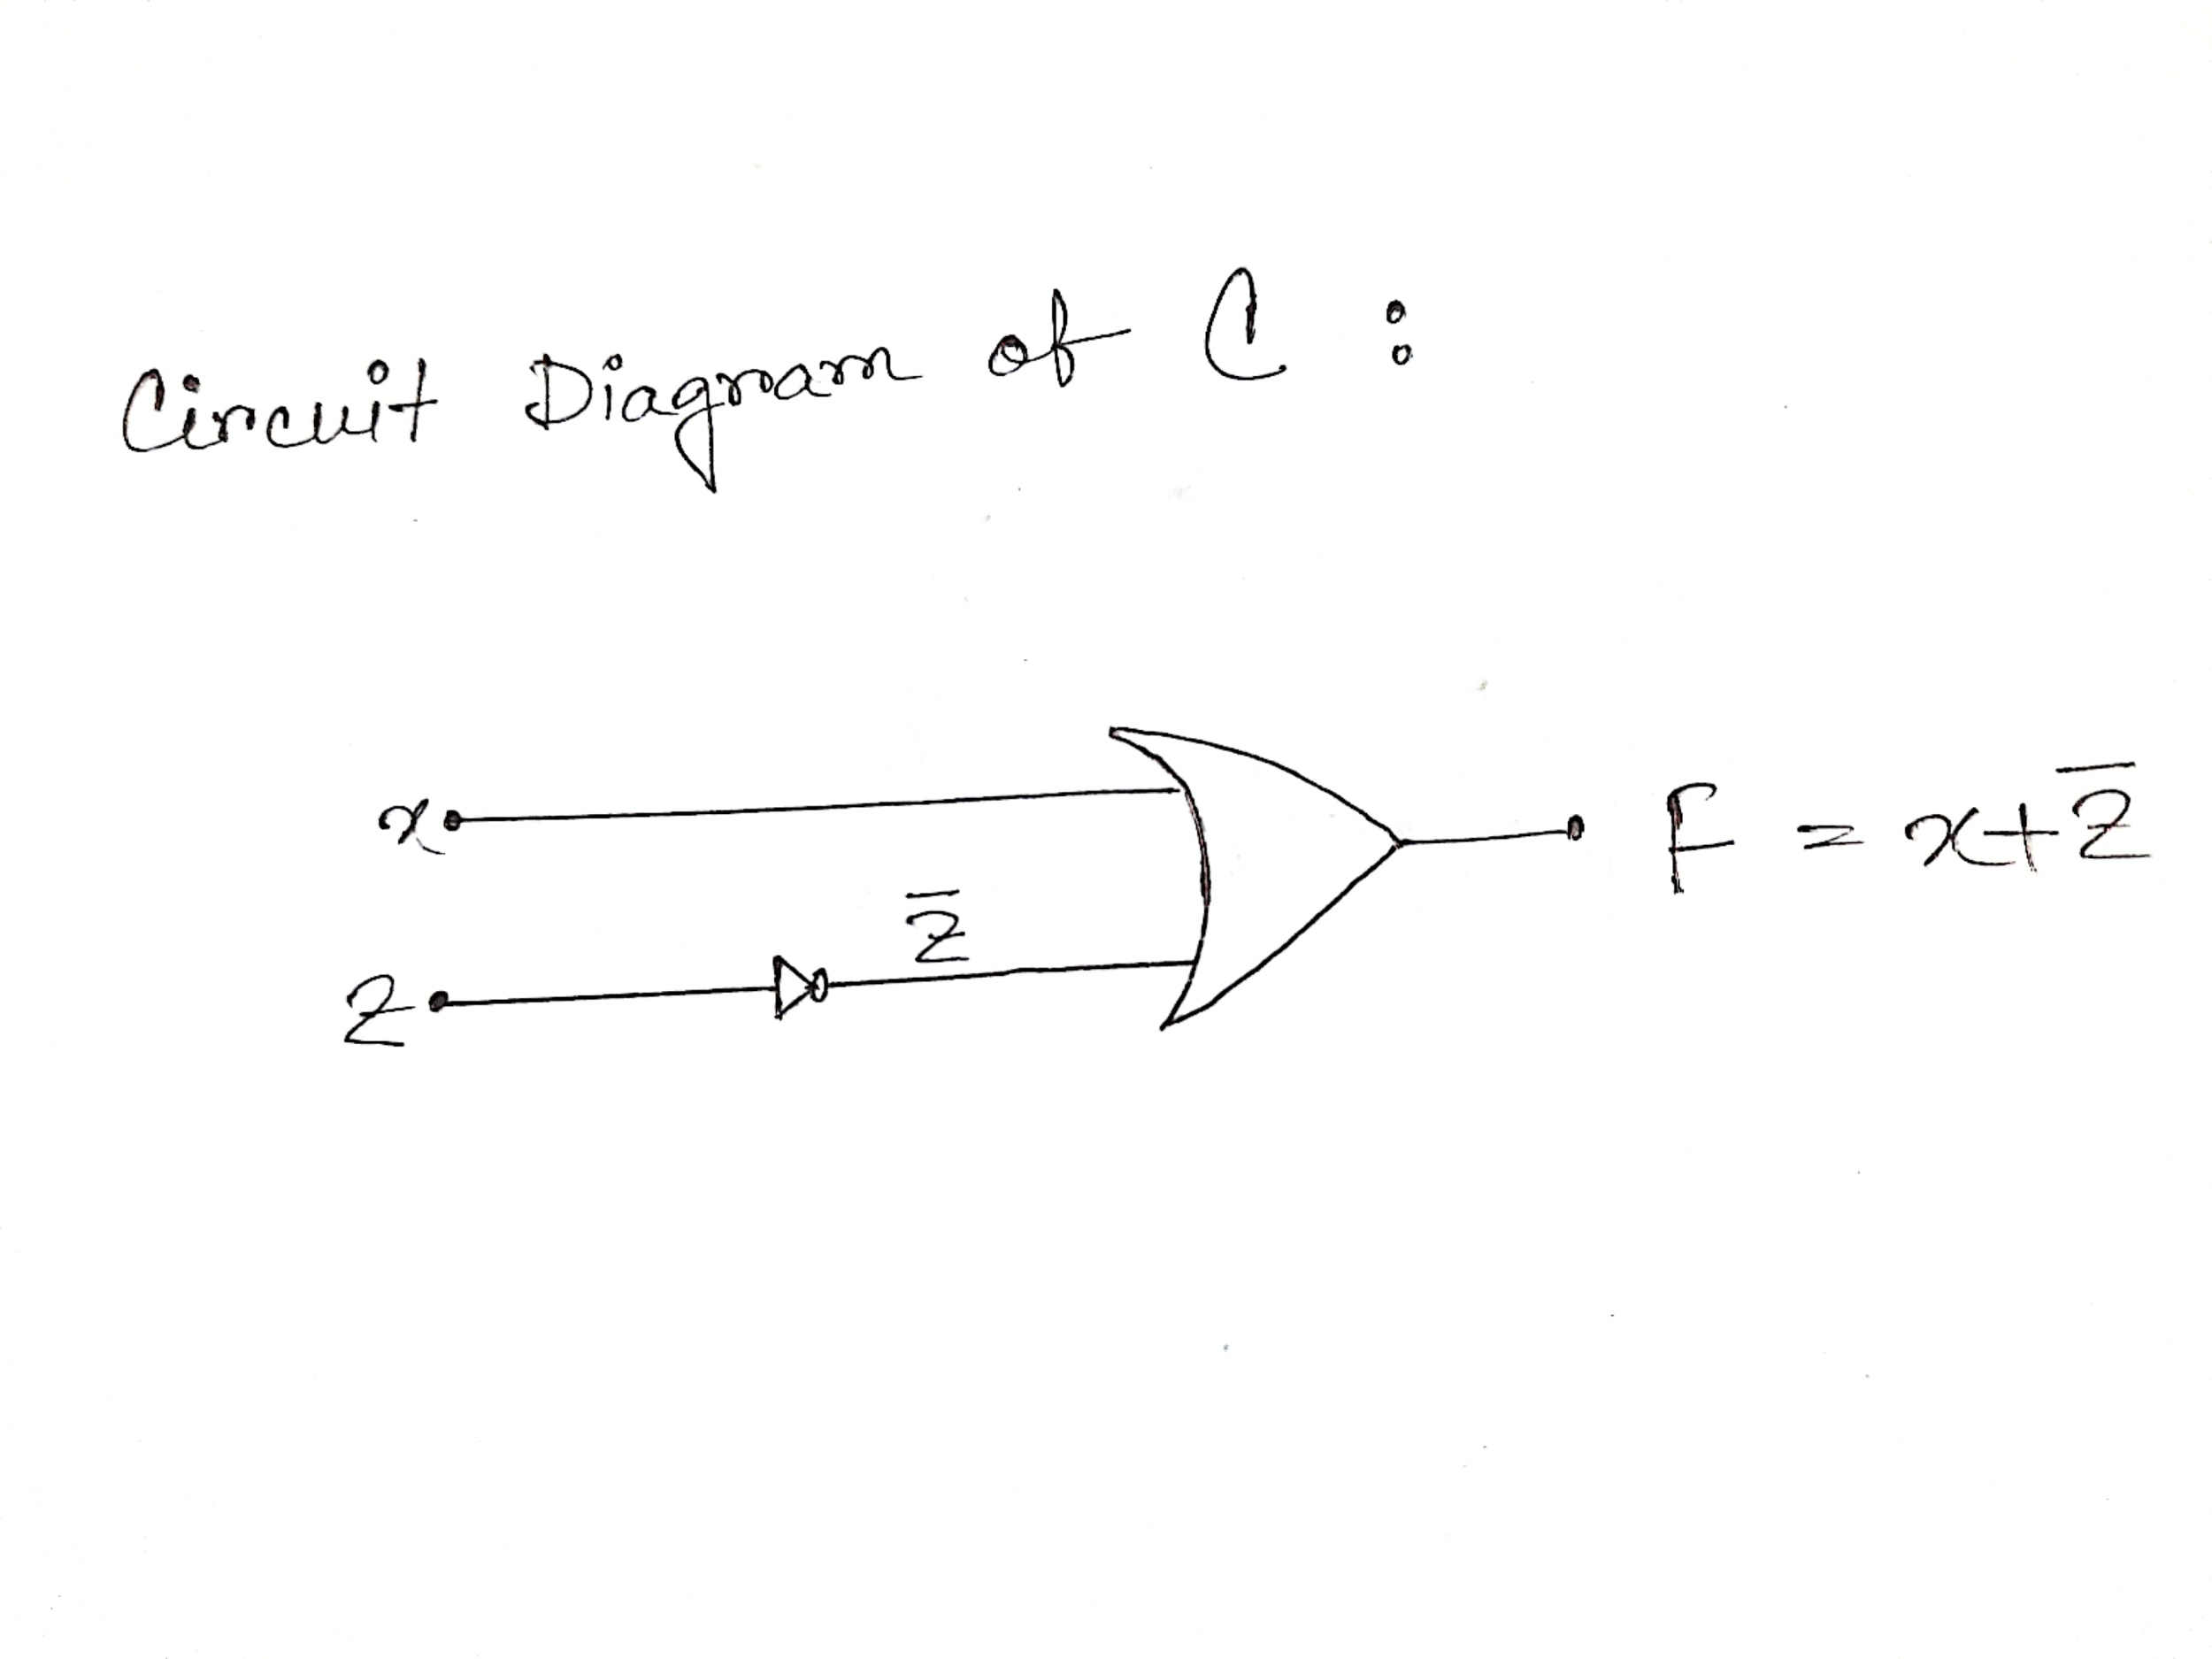 Circuit Diagram of C :
x
F = x+z̅
z̅
z